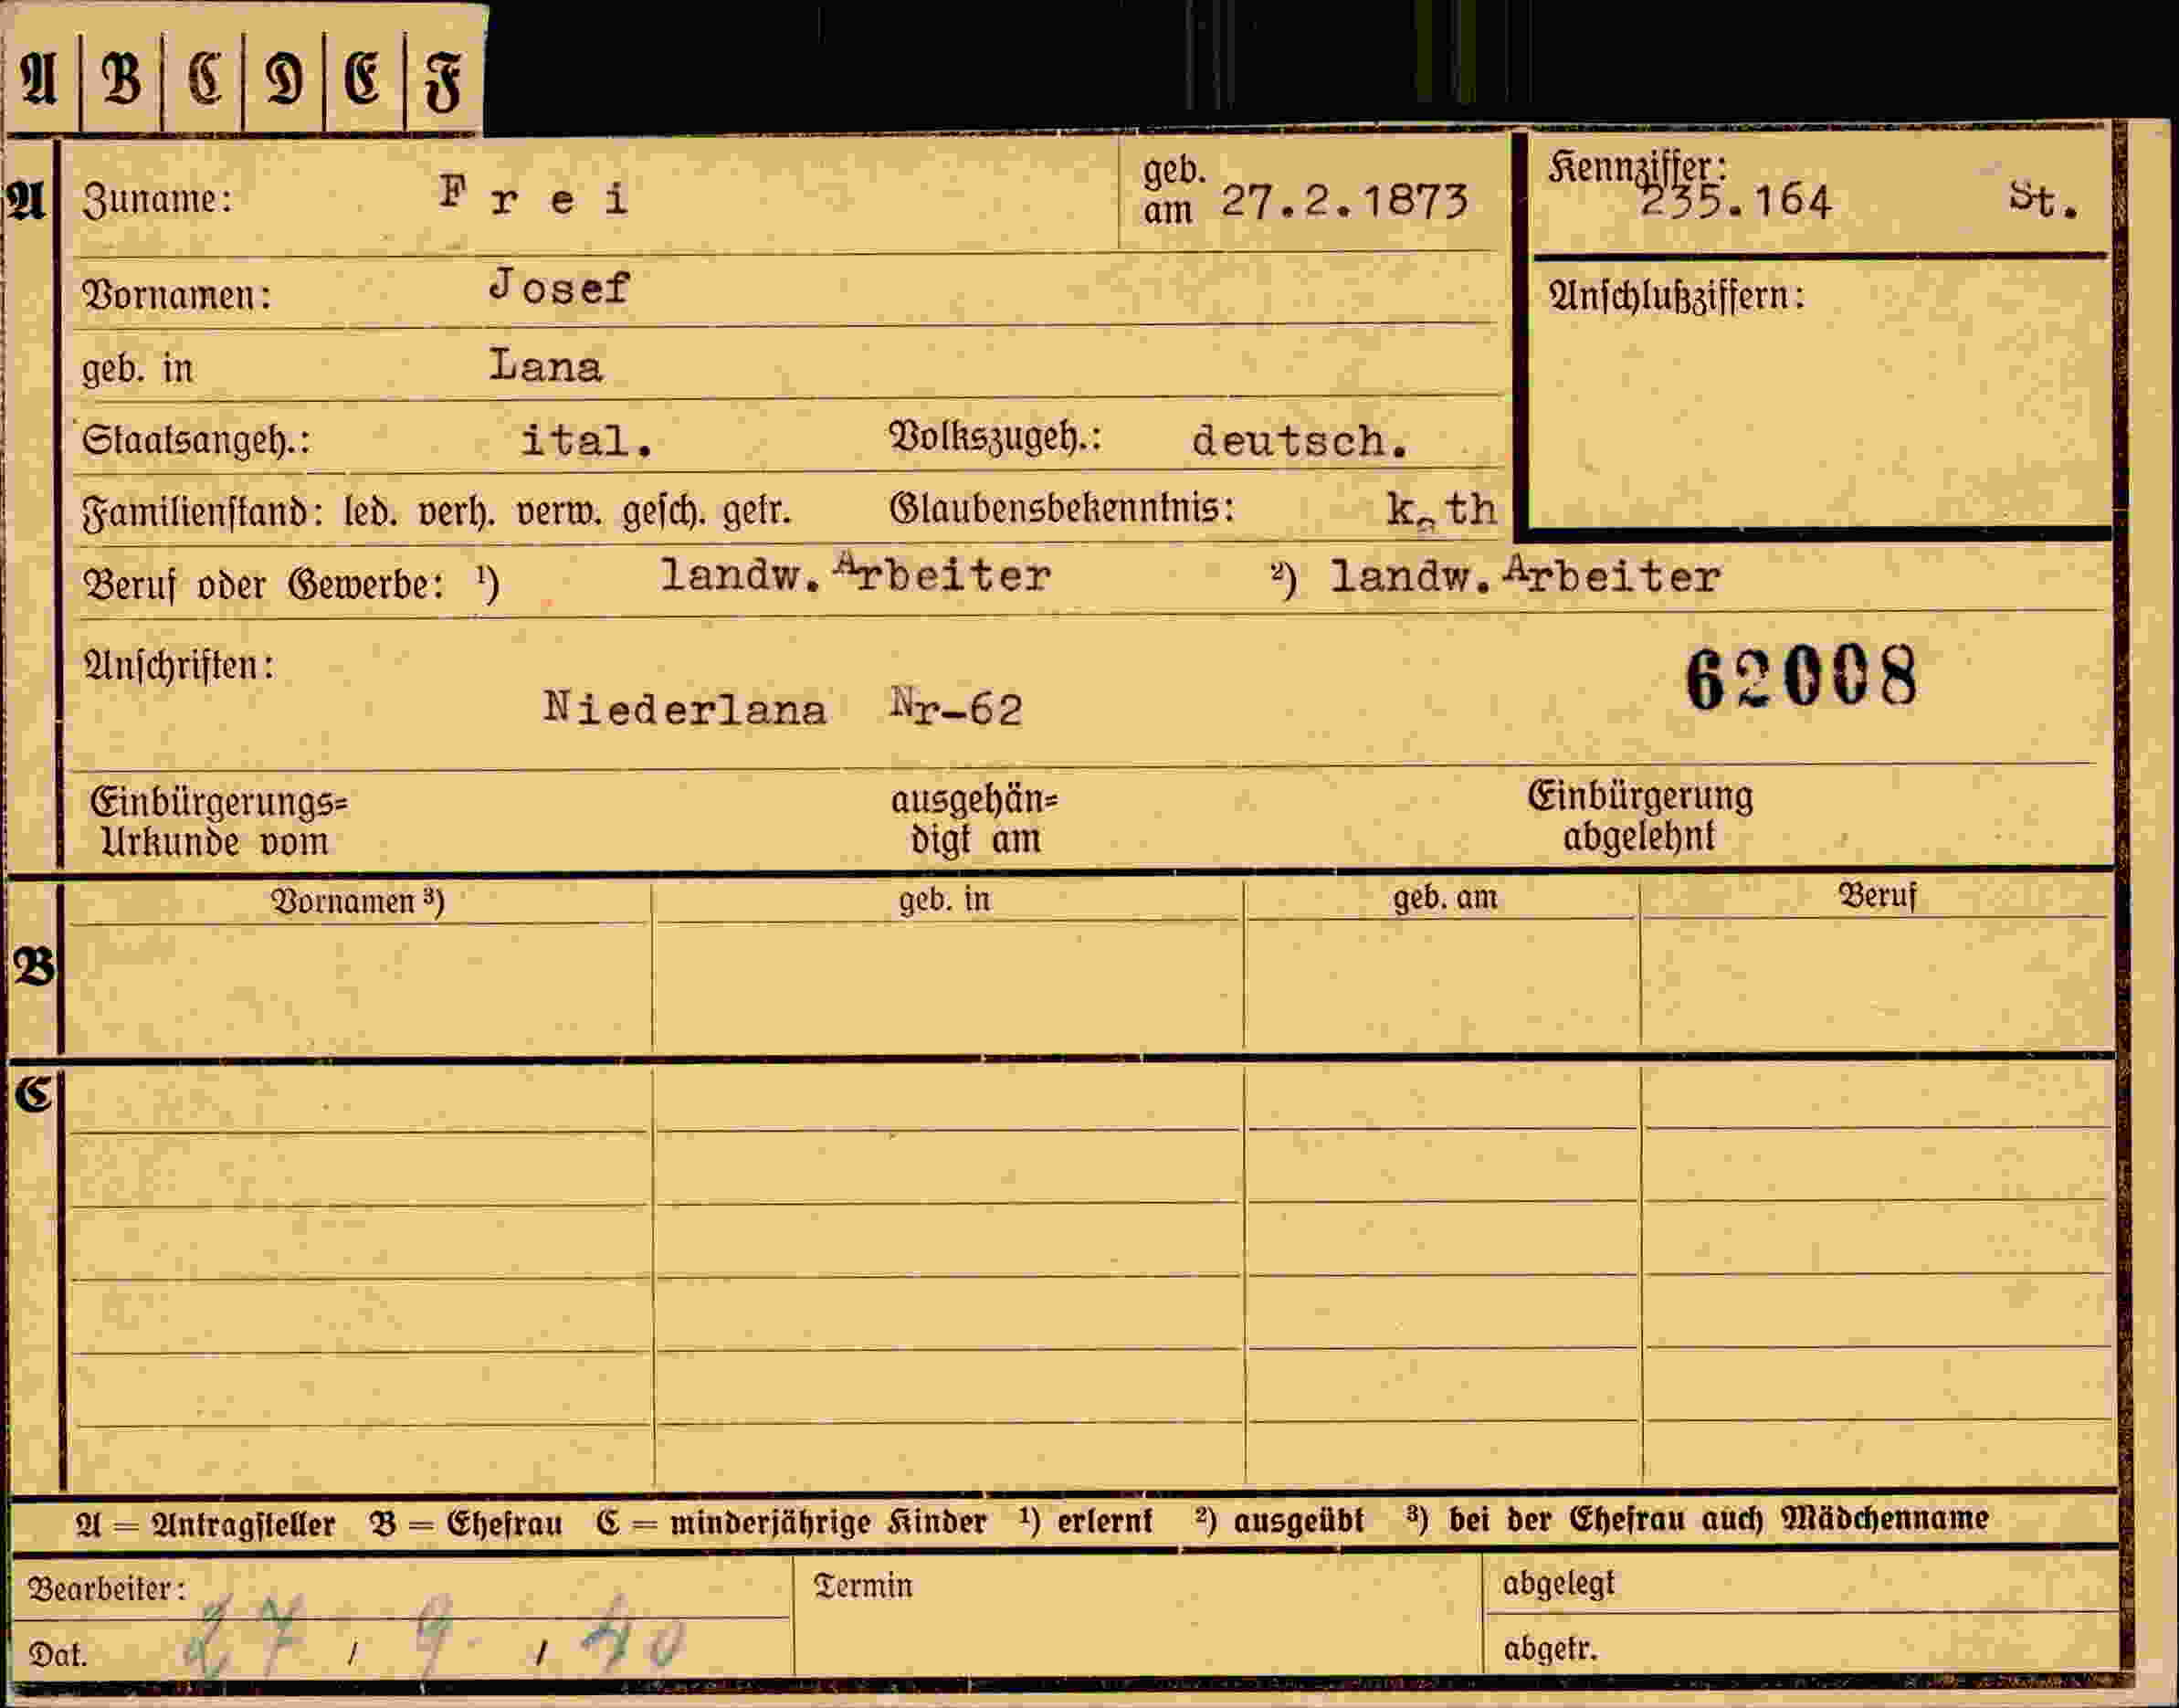 A B C D E F
A Zuname: Frei geb. am 27.2.1873 Kennziffer: 235.164 St.
Vornamen: Josef Anschlußziffern:
geb. in Lana
Staatsangeh.: ital. Volkszugeh.: deutsch.
Familienstand: led. verh. verw. gesch. getr. Glaubensbekenntnis: k th
Beruf oder Gewerbe: ¹) landw. Arbeiter ²) landw. Arbeiter
Anschriften: 62008
Niederlana Nr-62
Einbürgerungs= ausgehän= Einbürgerung
Urkunde vom digt am abgelehnt
Vornamen ³) geb. in geb. am Beruf
B
C
A = Antragsteller B = Ehefrau C = minderjährige Kinder ¹) erlernt ²) ausgeübt ³) bei der Ehefrau auch Mädchenname
Bearbeiter: Termin abgelegt
Dat. 27 / 9 / 40 abgetr.